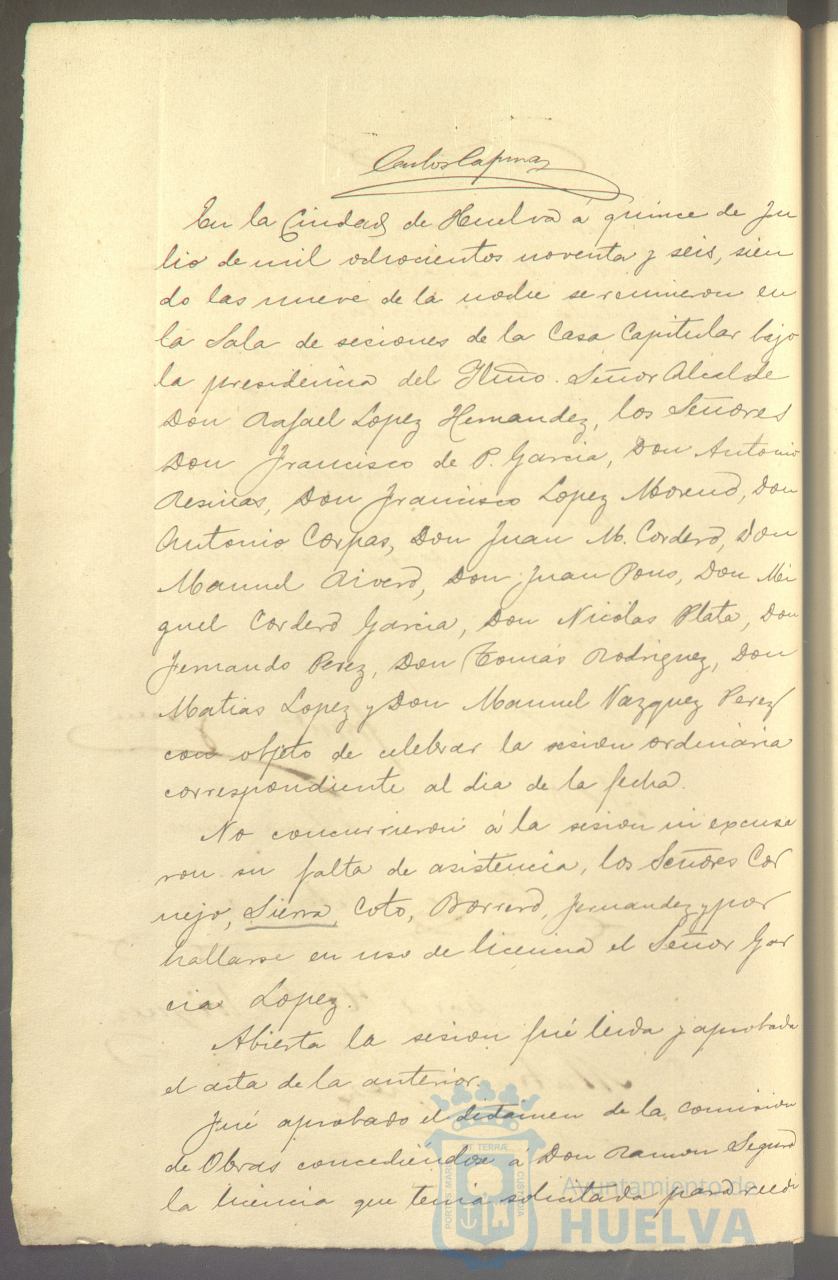 Carlos Capuz
En la Ciudad de Huelva á quince de Ju
lio de mil ochocientos noventa y seis, sien
do las nueve de la noche se reunieron en
la Sala de sesiones de la Casa Capitular bajo
la presidencia del Iltmo. Señor Alcalde
Don Rafael Lopez Hernandez, los Señores
Don Francisco de P. Garcia, Don Antonio
Resinas, Don Francisco Lopez Moreno, Don
Antonio Corpas, Don Juan M. Cordero, Don
Manuel Rivero, Don Juan Pons, Don Mi
guel Cordero Garcia, Don Nicolas Plata, Don
Fernando Perez, Don Tomás Rodriguez, Don
Matias Lopez y Don Manuel Vazquez Perez
con objeto de celebrar la sesion ordinaria
correspondiente al dia de la fecha.
No concurrieron á la sesion ni excusa
ron su falta de asistencia, los Señores Cor
nejo, Sierra, Coto, Borrero, Fernandez y por
hallarse en uso de licencia el Señor Gar
cia Lopez.
Abierta la sesion fué leida y aprobada
el acta de la anterior.
Fué aprobado el dictamen de la comision
de Obras concediéndose á Don Ramon Seguro
la licencia que tenia solicitada para reedi
PORTUS MARIS ET TERRÆ CUSTODIA
Ayuntamiento de
HUELVA